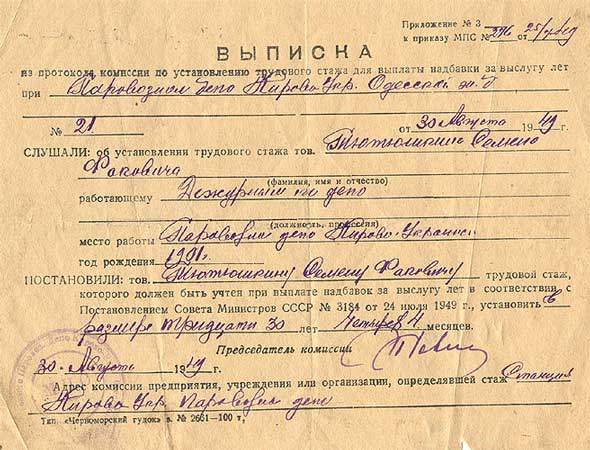 Приложение № 3
к приказу МПС № 276 от 25/
ВЫПИСКА
из протокола комиссии по установлению трудового стажа для выплаты надбавки за выслугу лет
при Паровозном депо Кирово Укр. Одесск. ж.д
№ 21 от 30 Августа 1949 г.
СЛУШАЛИ: об установлении трудового стажа тов. Тютюшкина Семена
(фамилия, имя и отчество)
работающему Дежурным по депо
(должность, профессия)
место работы Паровозн депо Кирово-Украинск
год рождения 1901 г.
ПОСТАНОВИЛИ: тов. Тютюшкину Семену трудовой стаж,
которого должен быть учтен при выплате надбавок за выслугу лет в соответствии с
Постановлением Совета Министров СССР № 3184 от 24 июля 1949 г., установить в
размере тридцати 30 лет Четырех 4 месяцев.
Председатель комиссии
30 Августа 1949 г.
Адрес комиссии предприятия, учреждения или организации, определявшей стаж Станция
Кирово Укр. Паровозн депо
Тип. «Черноморский гудок» з. № 2661—100 т,